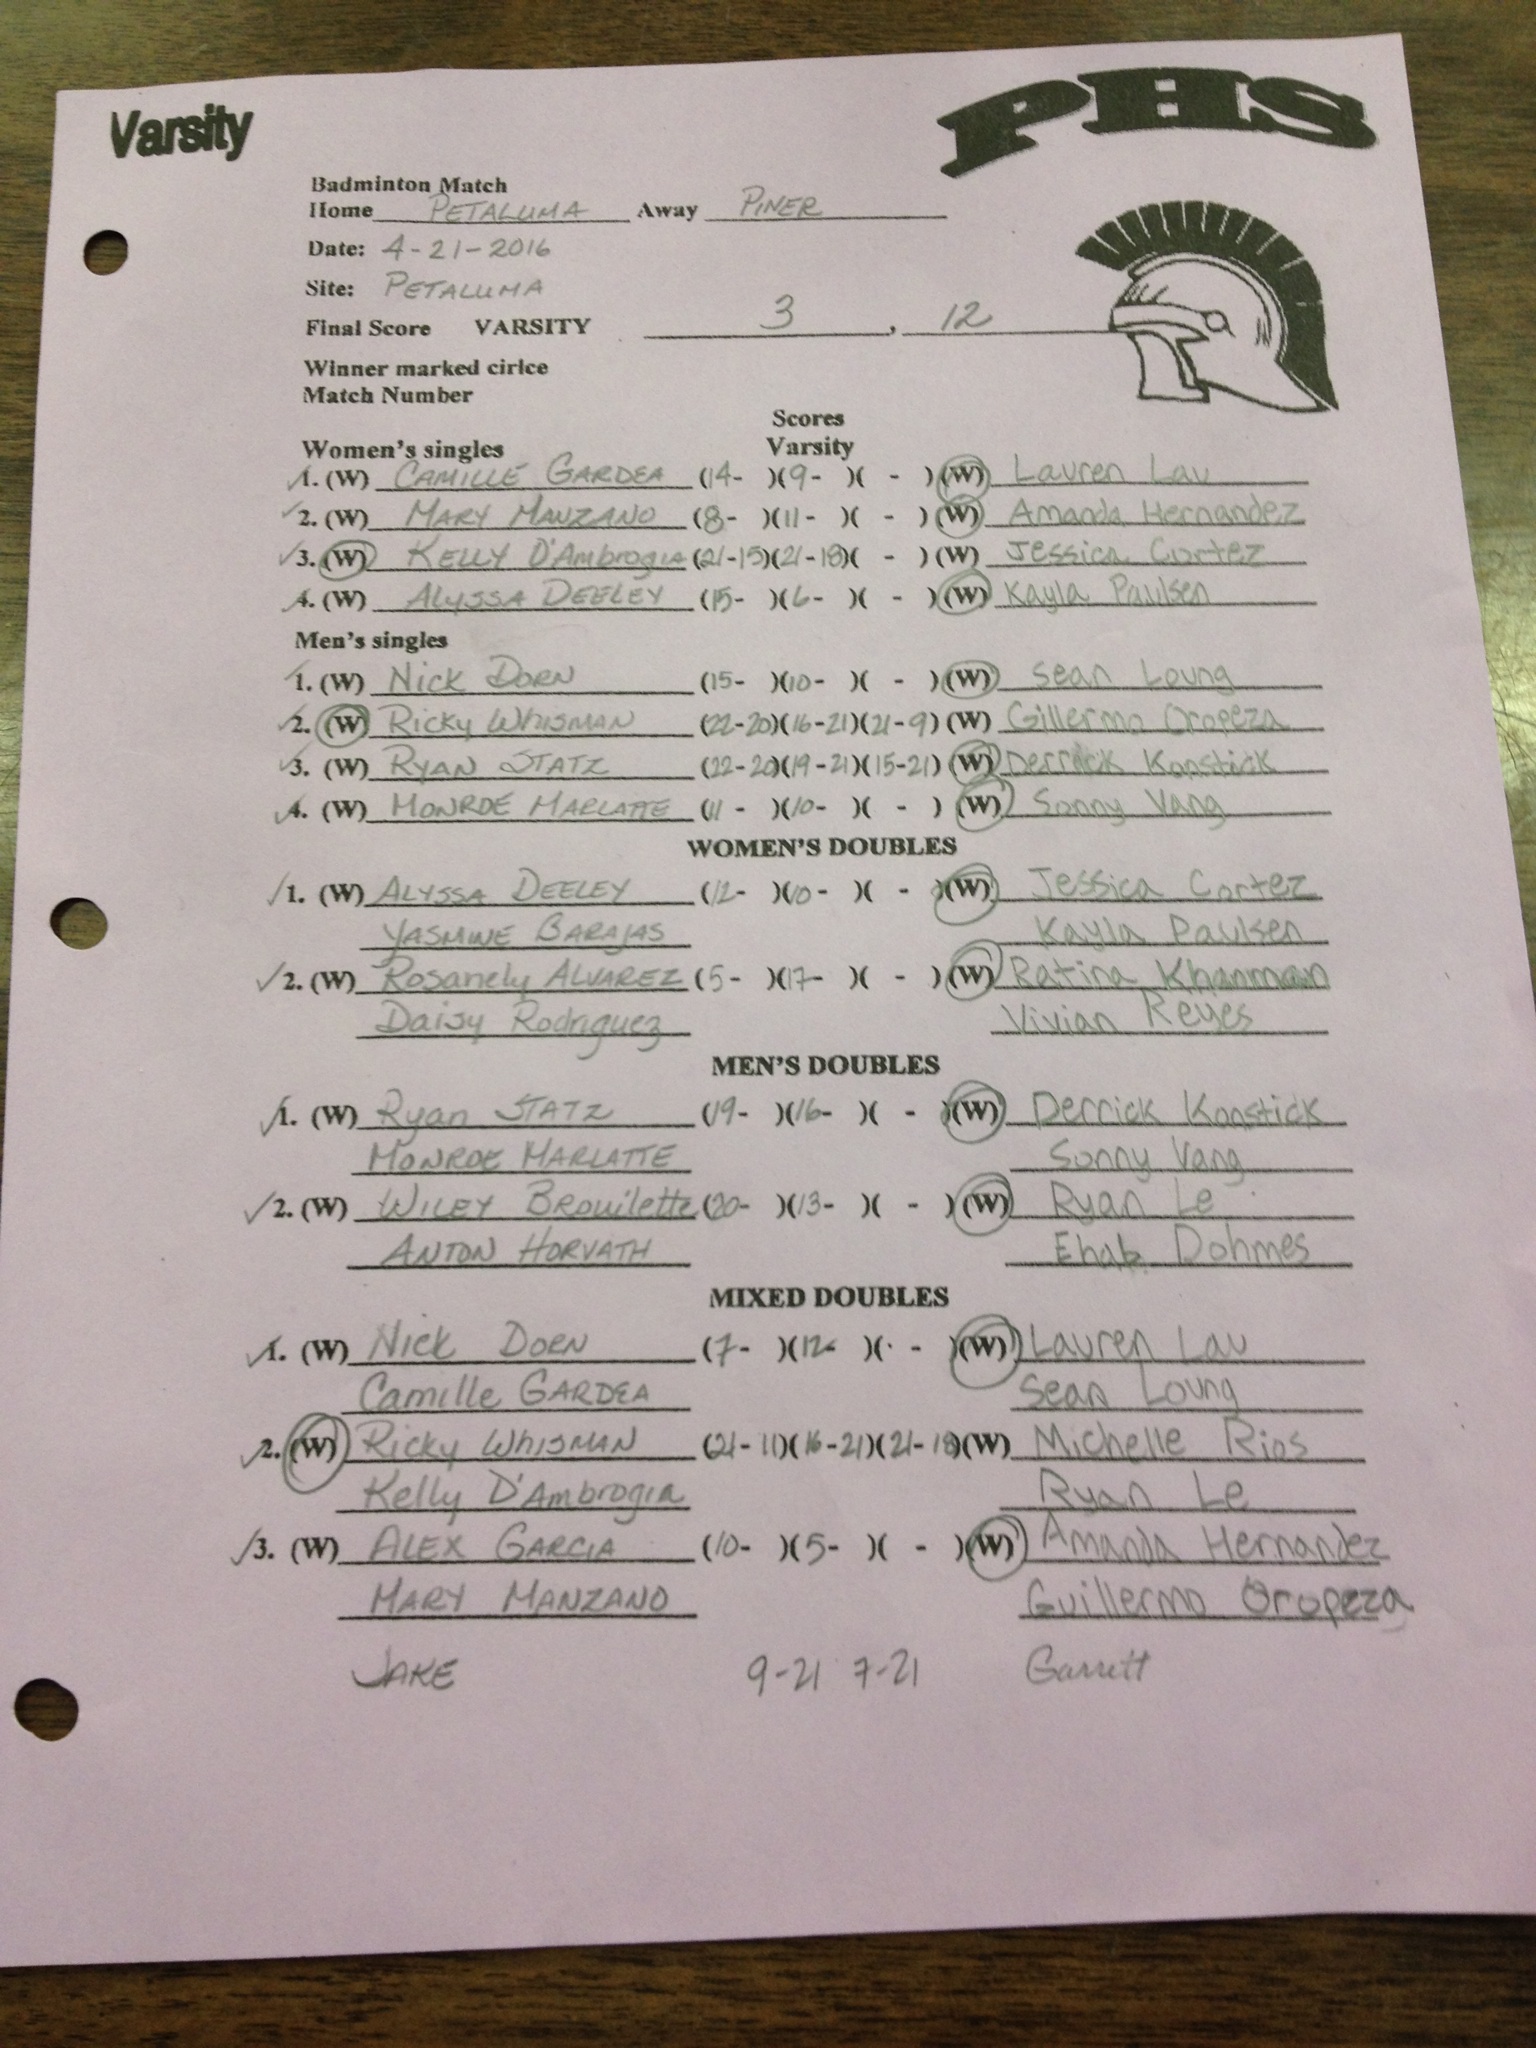 Varsity
PHS
Badminton Match
Home PETALUMA Away PINER
Date: 4-21-2016
Site: PETALUMA
Final Score VARSITY 3, 12
Winner marked cirlce
Match Number
Scores
Women's singles Varsity
1. (W) CAMILLE GARDEA (14- )(9- )( - ) (W) Lauren Lau
2. (W) MARY MANZANO (8- )(11- )( - ) (W) Amanda Hernandez
3. (W) KELLY D'Ambrogia (21-15)(21-18)( - ) (W) Jessica Cortez
4. (W) ALYSSA DEELEY (15- )(6- )( - ) (W) Kayla Paulsen
Men's singles
1. (W) Nick DORN (15- )(10- )( - ) (W) Sean Loung
2. (W) RICKY WHISMAN (22-20)(16-21)(21-9) (W) Gillermo Oropeza
3. (W) RYAN STATZ (22-20)(19-21)(15-21) (W) Derrick Konstick
4. (W) MONROE MARLATTE (11 - )(10- )( - ) (W) Sonny Vang
WOMEN'S DOUBLES
1. (W) ALYSSA DEELEY (12- )(10- )( - )(W) Jessica Cortez
YASMINE BARAJAS Kayla Paulsen
2. (W) Rosanely ALVAREZ (5- )(17- )( - ) (W) Ratina Khanman
Daisy Rodriguez Vivian Reyes
MEN'S DOUBLES
1. (W) Ryan STATZ (19- )(16- )( - )(W) Derrick Konstick
MONROE MARLATTE Sonny Vang
2. (W) WILEY BROUILETTE (20- )(13- )( - ) (W) Ryan Le
ANTON HORVATH Ehab Dohmes
MIXED DOUBLES
1. (W) Nick DORN (7- )(12- )( - )(W) Lauren Lau
Camille GARDEA Sean Loung
2. (W) Ricky WHISMAN (21-11)(16-21)(21-18)(W) Michelle Rios
Kelly D'Ambrogia Ryan Le
3. (W) ALEX GARCIA (10- )(5- )( - )(W) Amanda Hernandez
MARY MANZANO Guillermo Oropeza
JAKE 9-21 7-21 Garrett